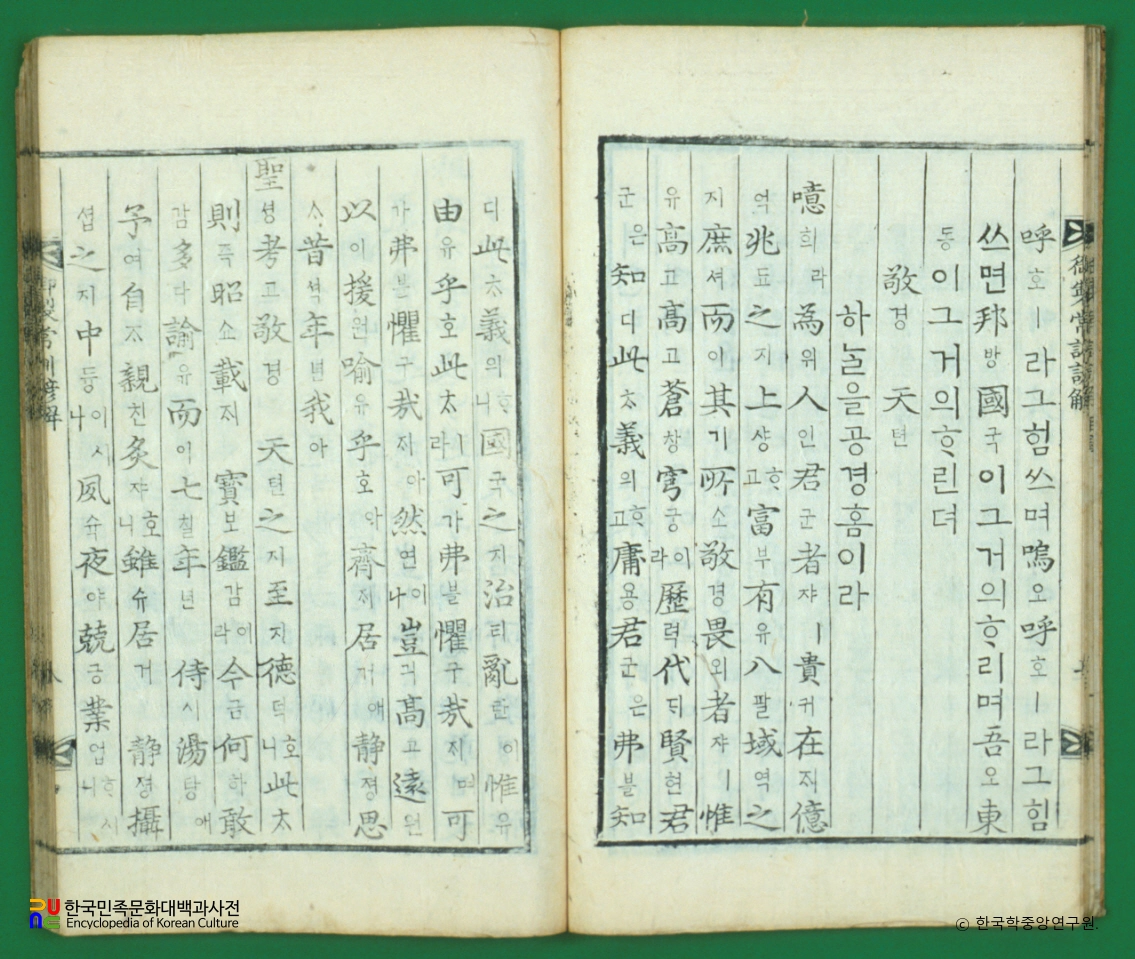 呼호ㅣ라그험쓰며嗚오呼호ㅣ라그힘
쓰면邦방國국이그거의ᄒᆞ리며吾오東
동이그거의ᄒᆞ린뎌
敬경天텬
하ᄂᆞᆯ을공경홈이라
噫희라為위人인君군者쟈ㅣ貴귀在ᄌᆡ億
억兆됴之지上샹ᄒᆞ고富부有유八팔域역之
지庶셔而이其기所소敬경畏외者쟈ㅣ惟
유高고高고蒼창穹궁이라歷력代ᄃᆡ賢현君
군은知디此ᄎᆞ義의ᄒᆞ고庸용君군은弗블知
디此ᄎᆞ義의ᄒᆞ니國국之지治티亂란이惟유
由유乎호此ᄎᆞㅣ라可가弗블懼구哉ᄌᆡ며可
가弗블懼구哉ᄌᆡ아然연이나豈긔高고遠원
以이援원喻유乎호아齋ᄌᆡ居거애靜졍思
ᄉᆞ昔셕年년我아
聖셩考고敬경天텬之지至지德덕ᄒᆞ니此ᄎᆞ
則즉昭쇼載ᄌᆡ寶보鑑감이라今금何하敢
감多다諭유而이七칠年년侍시湯탕애
予여自ᄌᆞ親친灸쟈ᄒᆞ니雖슈居거靜졍攝
섭之지中듕이시나夙슉夜야兢긍業업ᄒᆞ시니
御製常訓諺解
한국민족문화대백과사전
Encyclopedia of Korean Culture
© 한국학중앙연구원.